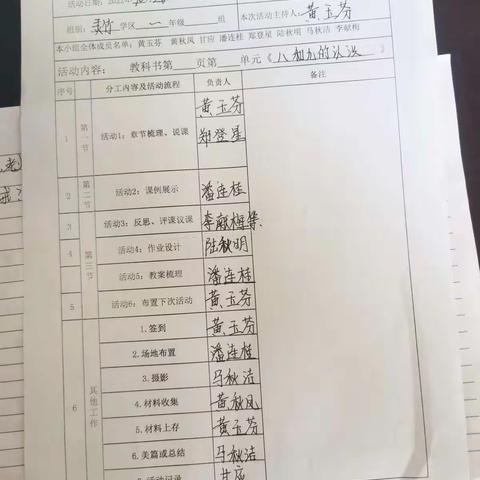 活动日期：2022年
组别：美竹 学区 一 年级 组 本次活动主持人：黄玉芬
本小组全体成员名单：黄玉芬 黄秋凤 甘应 潘连桂 郑登星 陆秋明 马秋洁 李献梅
活动内容： 教科书第 页第 单元《八和九的认识》
序号 分工内容及活动流程 负责人 备注
1 第一节 活动1：章节梳理、说课 黄玉芬 郑登星
2 第二节 活动2：课例展示 潘连桂
3 第三节 活动3：反思、评课议课 李献梅等
4 活动4：作业设计 陆秋明
活动5：教案梳理 潘连桂
5 活动6：布置下次活动 黄玉芬
6 其他工作 1.签到 黄玉芬
2.场地布置 潘连桂
3.摄影 马秋洁
4.材料收集 黄秋凤
5.材料上存 黄玉芬
6.美篇或总结 马秋洁
活动记录 甘应